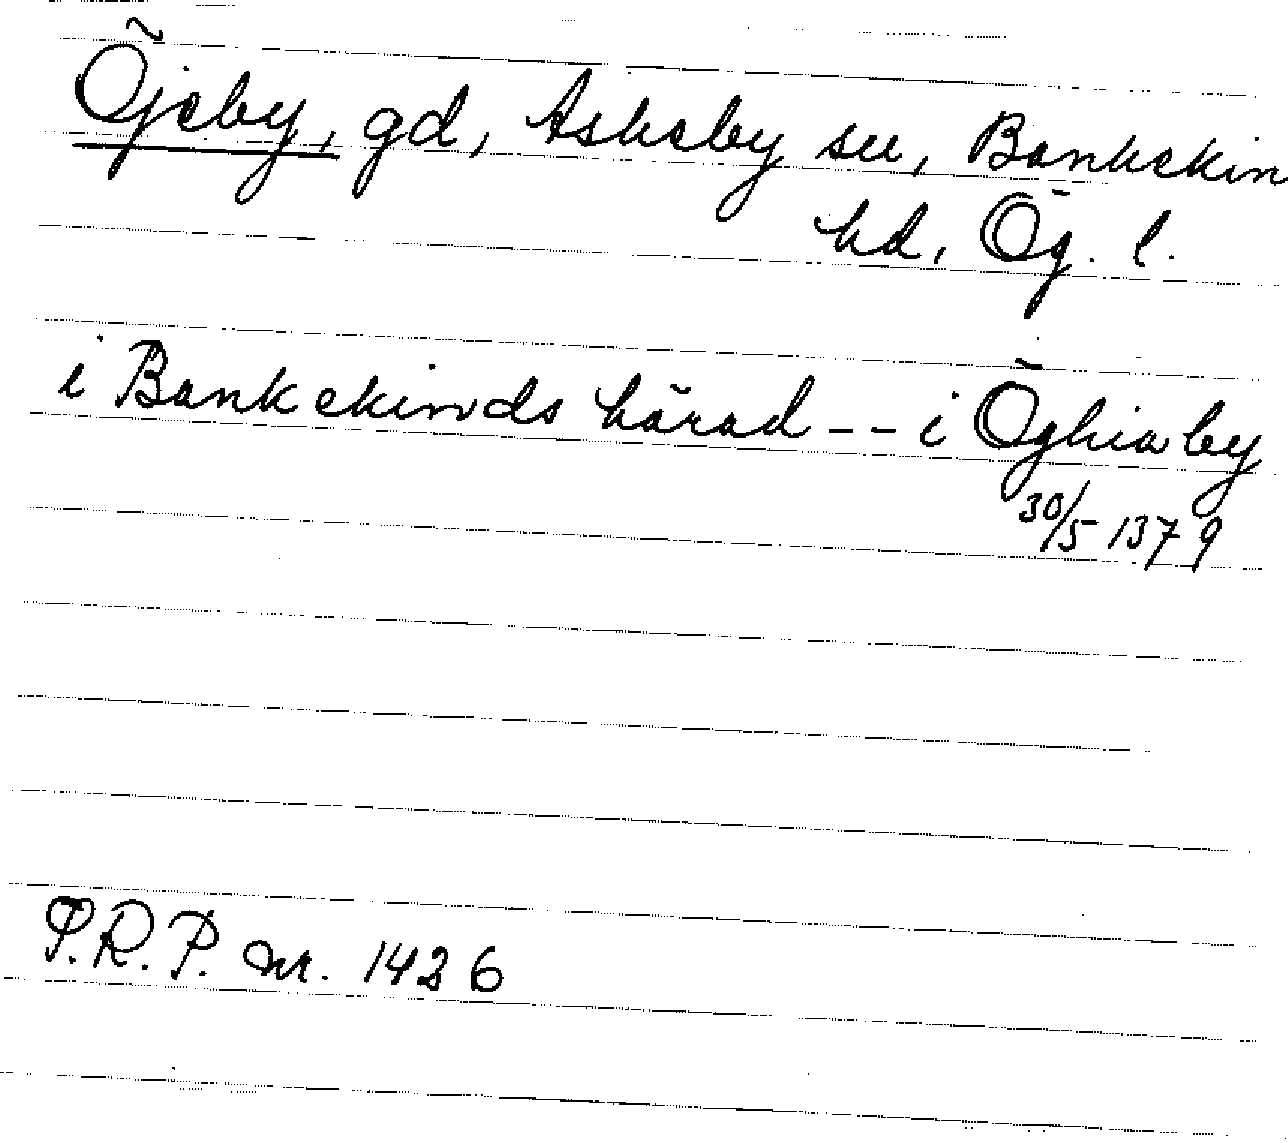 Öjeby, gd, Askeby sn, Bankekin
hd, Ög. l.
i Bankekinds härad -- i Öghiaby
30/5 1379
P.R.P. nr. 1426